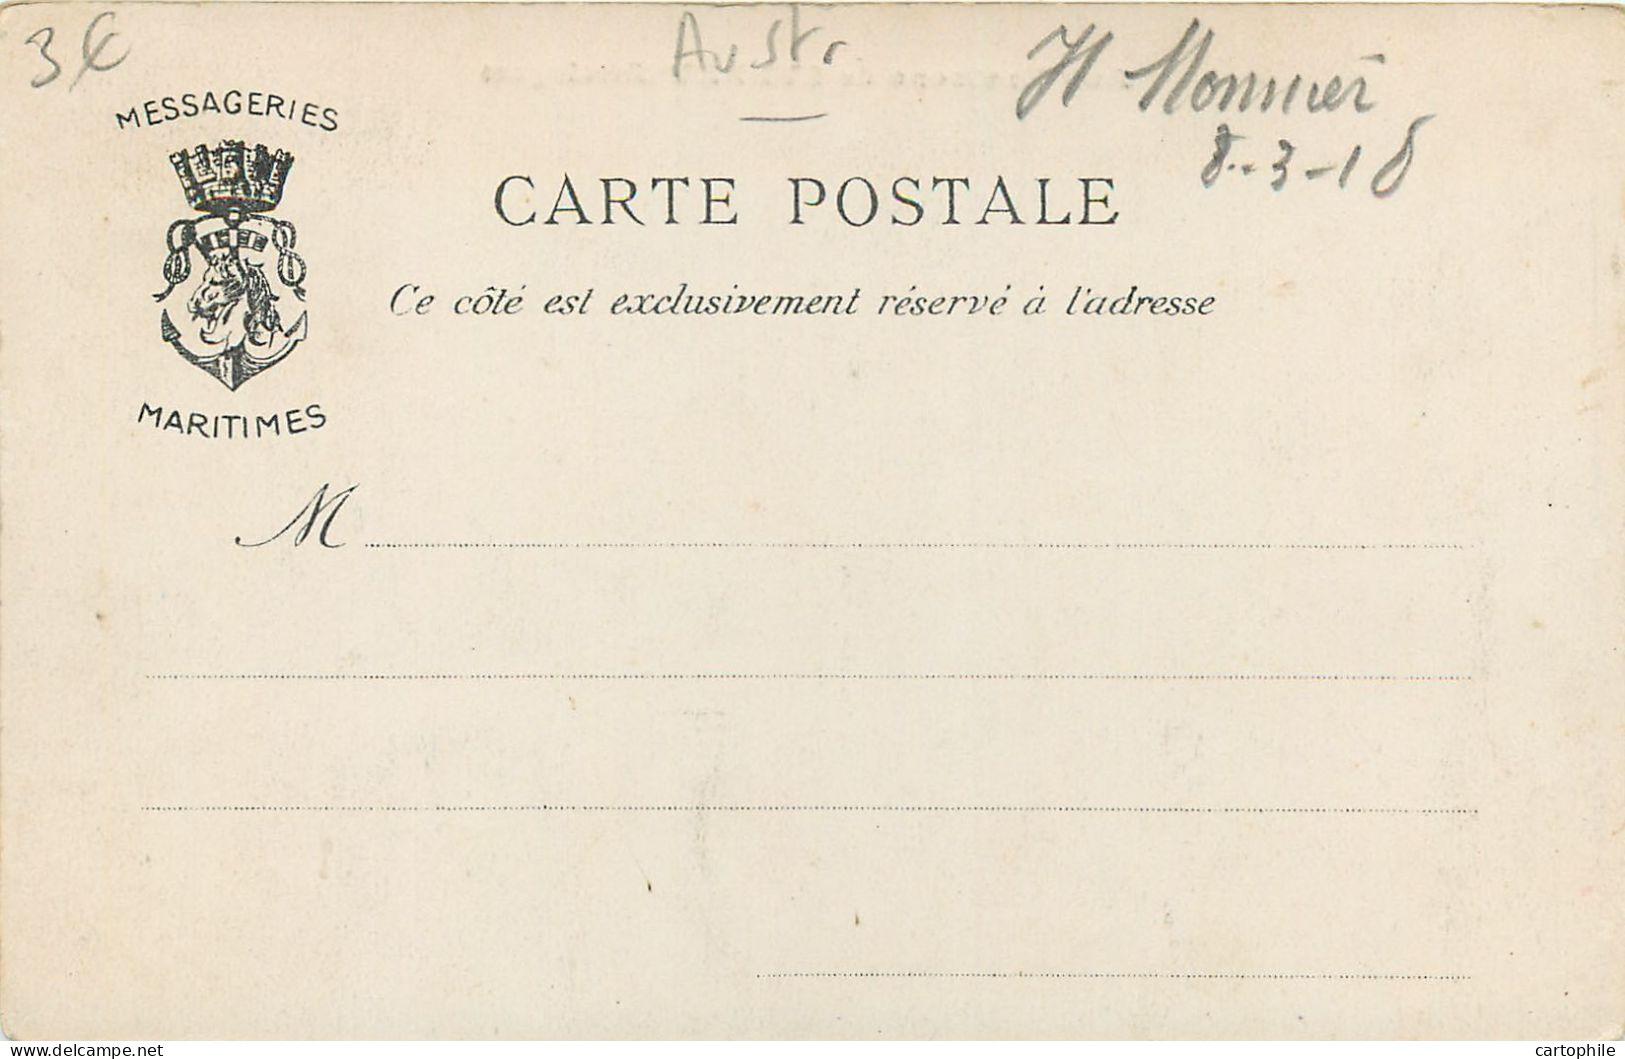 3€
Austr
H Monnier
8-3-18
MESSAGERIES
MARITIMES
CARTE POSTALE
Ce côté est exclusivement réservé à l'adresse
M
www.delcampe.net
cartophile